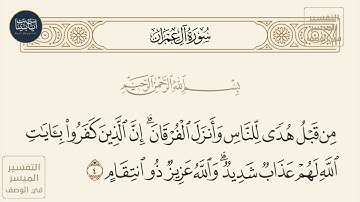 سُورَةُ آلِ عِمْرَان
بِسْمِ ٱللَّهِ ٱلرَّحْمَٰنِ ٱلرَّحِيمِ
مِن قَبْلُ هُدًى لِّلنَّاسِ وَأَنزَلَ ٱلْفُرْقَانَ ۗ إِنَّ ٱلَّذِينَ كَفَرُوا۟ بِـَٔايَـٰتِ
ٱللَّهِ لَهُمْ عَذَابٌ شَدِيدٌ ۗ وَٱللَّهُ عَزِيزٌ ذُو ٱنتِقَامٍ ٤
التفسير
الميسر
في الوصف